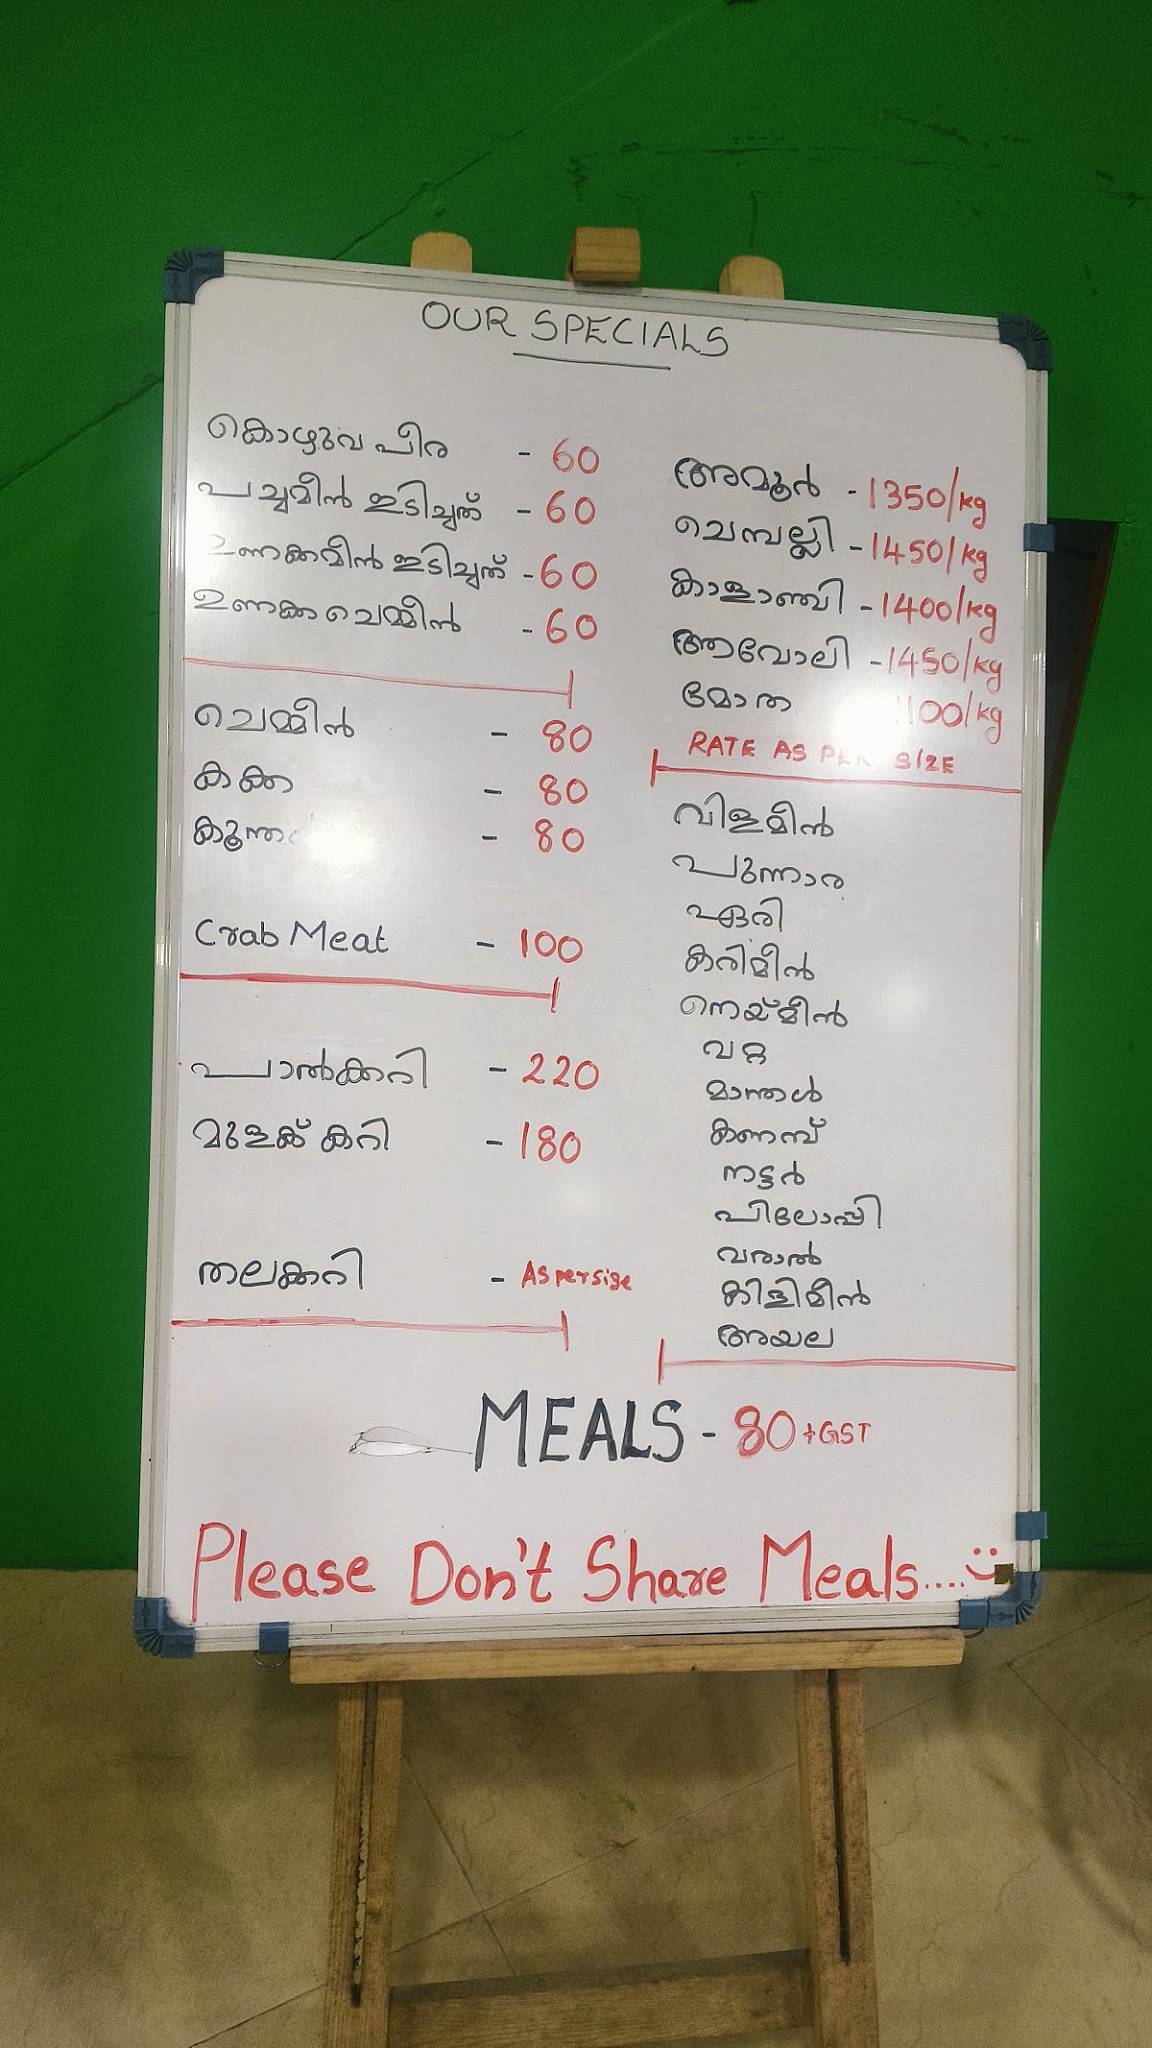 OUR SPECIALS
കൊഴുവ പീര - 60
പച്ചമീൻ ഇടിച്ചത് - 60
ഉണക്കമീൻ ഇടിച്ചത് - 60
ഉണക്ക ചെമ്മീൻ - 60
ചെമ്മീൻ - 80
കക്ക - 80
കൂന്തൽ - 80
Crab Meat - 100
പാൽക്കറി - 220
മുളക് കറി - 180
തലക്കറി - As per size
അമൂർ - 1350/kg
ചെമ്പല്ലി - 1450/kg
കാളാഞ്ചി - 1400/kg
ആവോലി - 1450/kg
മോത 1100/kg
RATE AS PER SIZE
വിളമീൻ
പുന്നാര
ഏരി
കരിമീൻ
നെയ്മീൻ
വറ്റ
മാന്തൾ
കണമ്പ്
നട്ടർ
പിലോപ്പി
വരാൽ
കിളിമീൻ
അയല
MEALS - 80 + GST
Please Don't Share Meals....